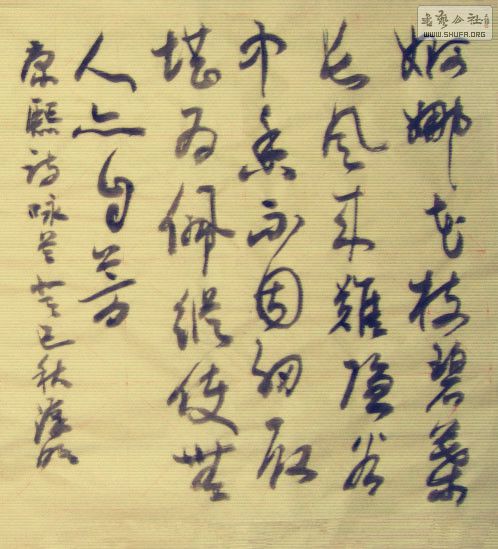 婀娜花枝碧葉
长风来難隐谷
中香不因纫取
堪为佩縱使無
人亦自芳
康熙诗咏兰癸巳秋
书艺公社
WWW.SHUFA.ORG